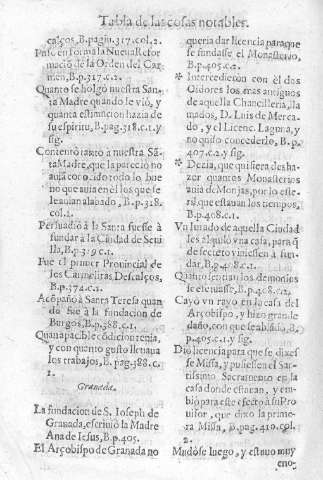 Tabla de las cosas notables.
calços, B. pagin. 317. col. 2.
Puse en forma la Nueua Reformació
de la Orden del Carmen,
B. p. 317. c. 2.
Quanto se holgó nuestra Santa
Madre quando le vió, y
quanta estimacion hazia de
su espiritu, B. pag. 318. c. 1. y
sig.
Contentó tanto a nuestra Sāta
Madre, que la pareció no
auia corrido todo lo bueno
que auia en el los que se
le auian alabado, B. p. 318.
col. 2.
Persuadió à la Santa fuesse à
fundar à la Ciudad de Seuilla,
B. p. 319. c. 1.
Fue el primer Prouincial de
los Carmelitas Descalços,
B. p. 374. c. 1.
Acōpañó à Santa Teresa quando
fue à la fundacion de
Burgos, B. p. 388. c. 1.
Quan apacible cōdicion tenia,
y con quento gusto lleuaua
los trabajos, B. pag. 388. c.
2.
Granada.
La fundacion de S. Ioseph de
Granada, escriuió la Madre
Ana de Iesus, B. p. 405.
El Arçobispo de Granada no
queria dar licencia para que
se fundasse el Monasterio,
B. p. 405. c. 1.
* Intercedieron con èl dos
Oidores los mas antiguos
de aquella Chancilleria, llamados,
D. Luis de Mercado,
y el Licenc. Laguna, y
no quiso concederlo, B. p.
407. c. 2. y sig.
* Dezia, que quisiera deshazer
quantos Monasterios
auia de Monjas, por lo esteril
que estauan los tiempos,
B. p. 408. c. 1.
Vn Iurado de aquella Ciudad
les alquiló vna casa, para q̄
de secreto viniessen à fundar,
B. p. 408. c. 1.
Quanto sentian los demonios
se efetuasse, B. p. 408. c. 2.
Cayó vn rayo en la casa del
Arçobispo, y hizo grande
daño, con que se ablādó, B.
p. 405. c. 1. y sig.
Dió licencia para que se dixesse
Missa, y pusiessen el Santissimo
Sacramento en la
casa donde estauan, y embió
para este efecto à su Prouisor,
que dixo la primera
Missa, B. pag. 410. col.
2.
Mudóse luego, y estuuo muy
eno-